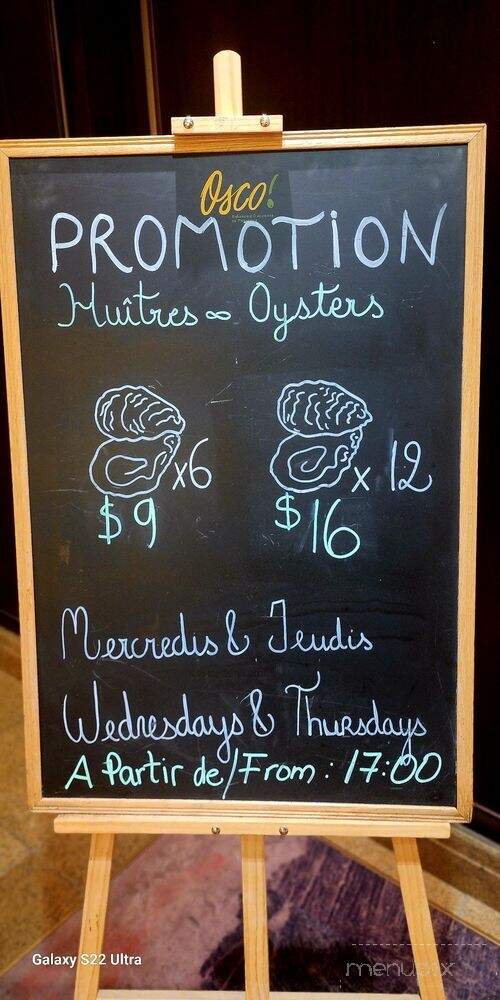 Osco!
PROMOTION
Huîtres ∞ Oysters
x6 x 12
$9 $16
Mercredis & Jeudis
Wednesdays & Thursdays
A Partir de/From : 17:00
Galaxy S22 Ultra
menupix